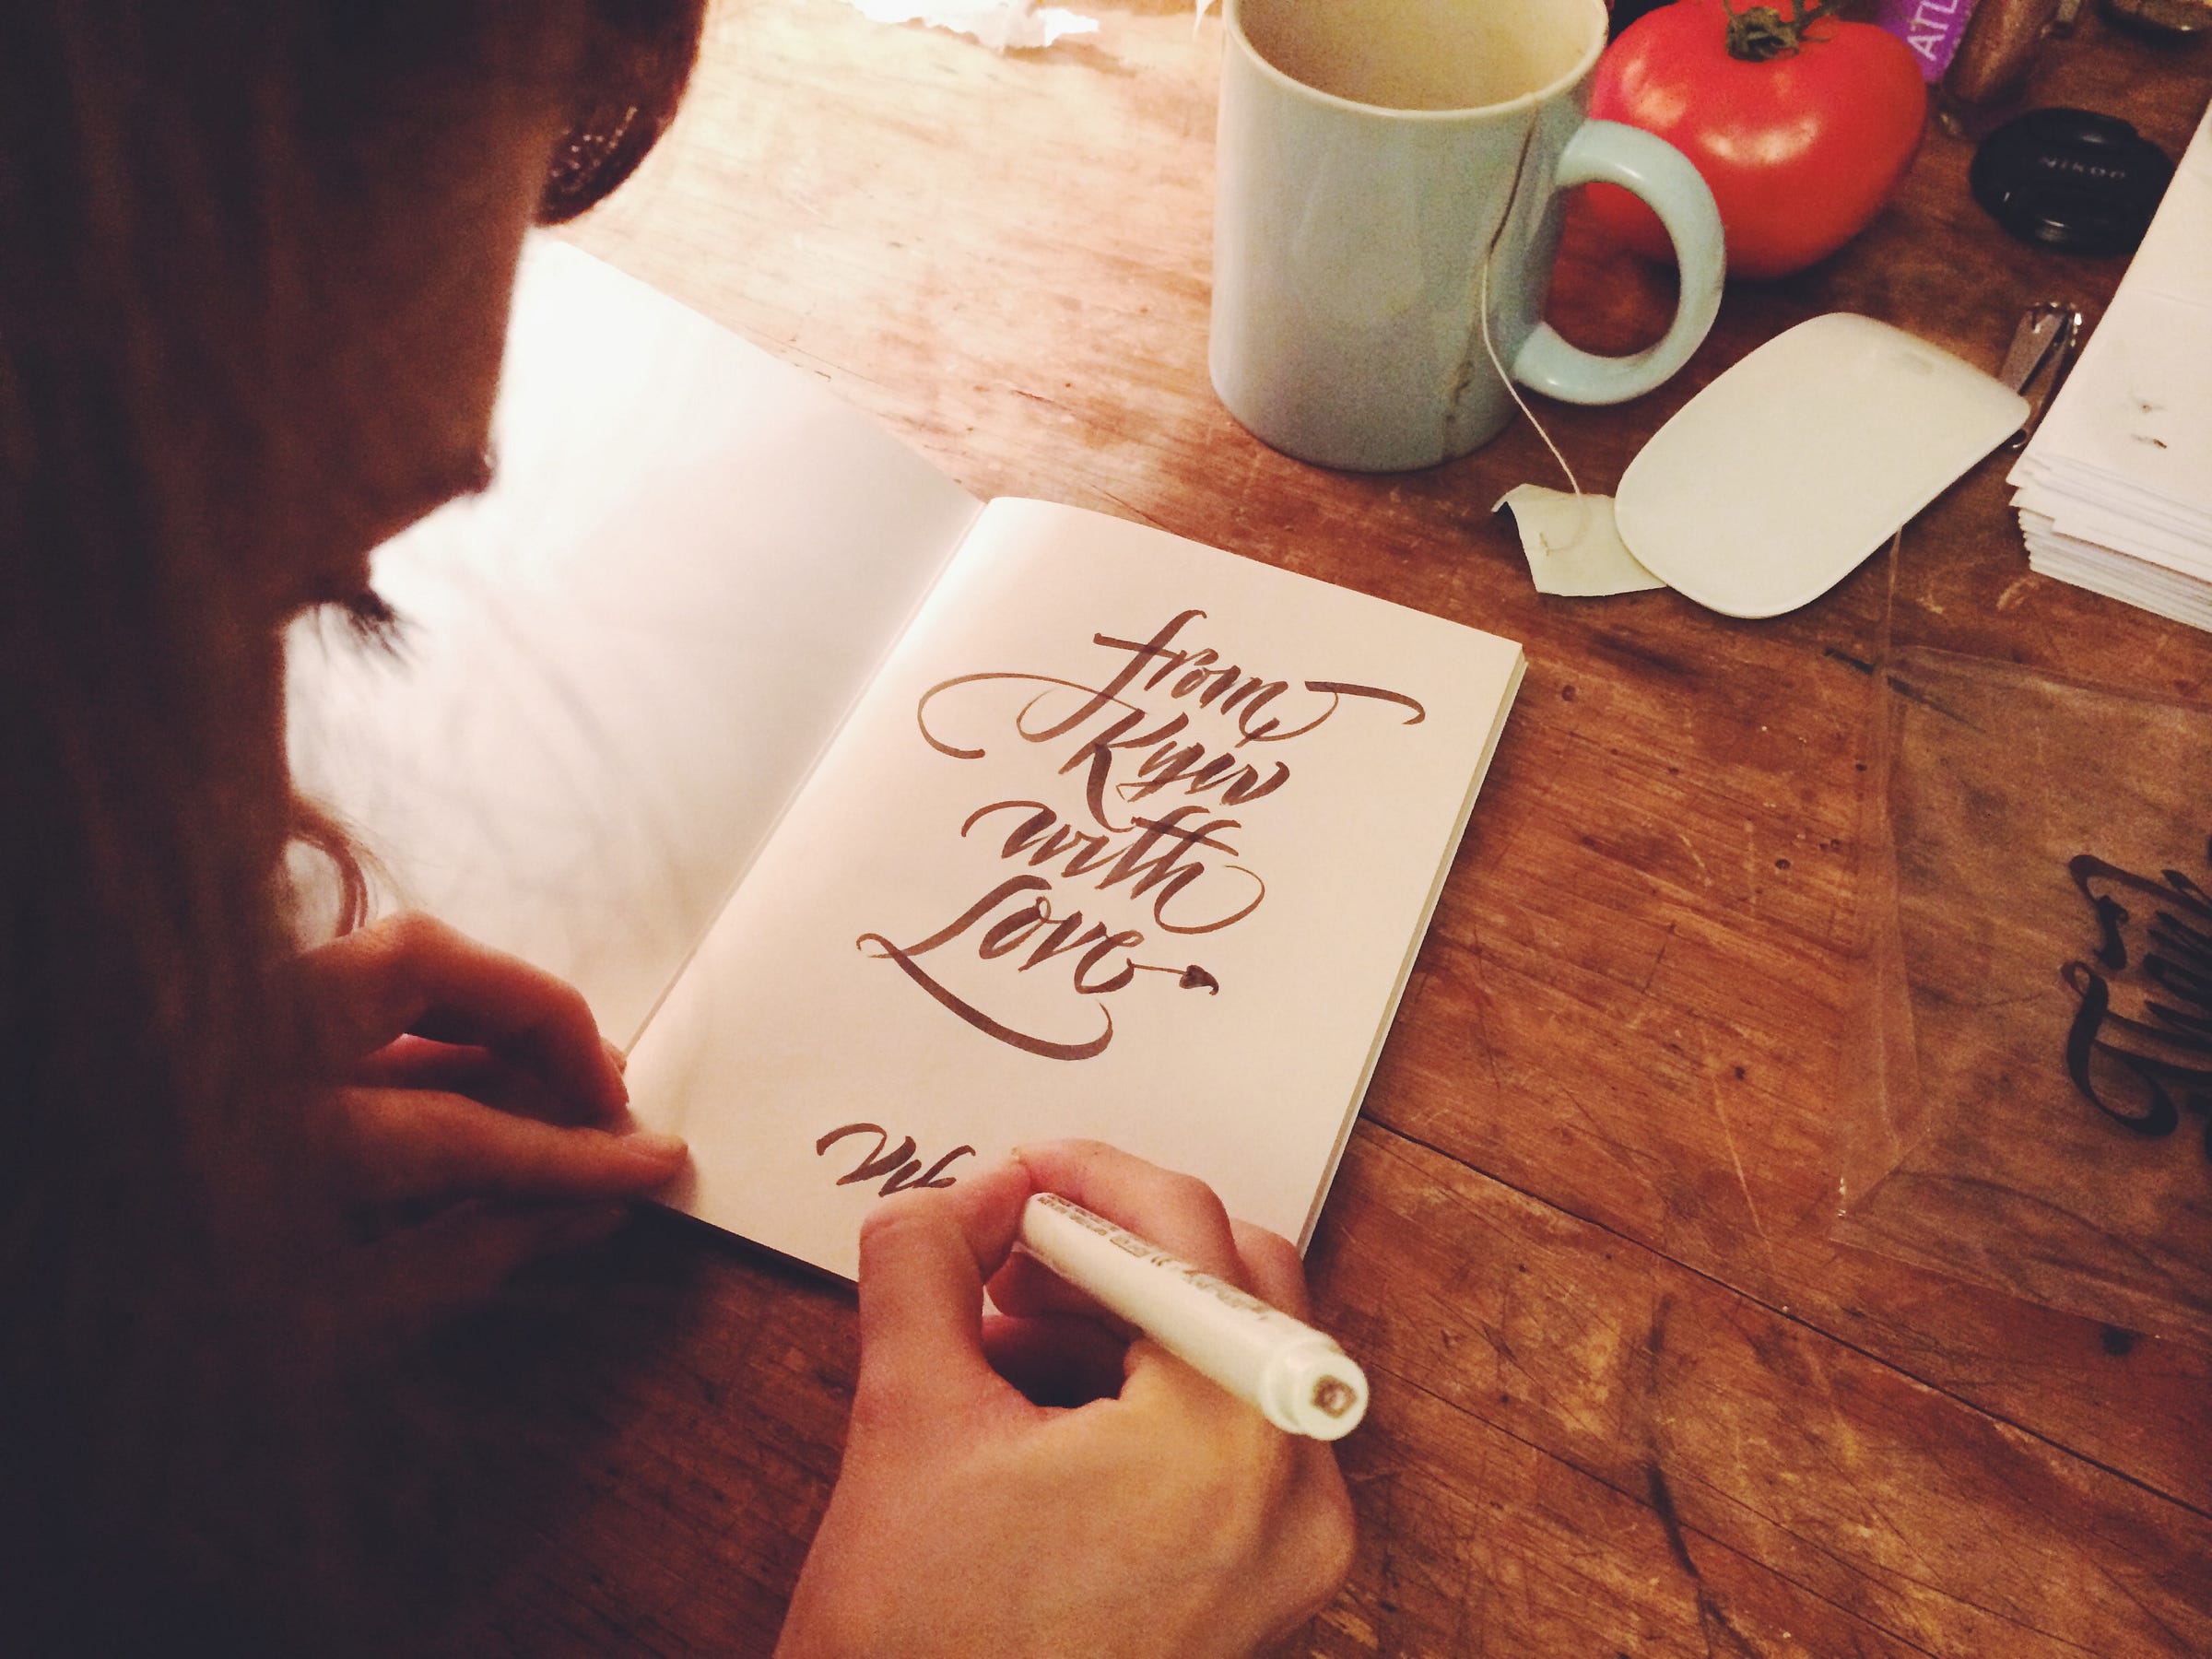 from
Kyiv
with
Love
Nikon